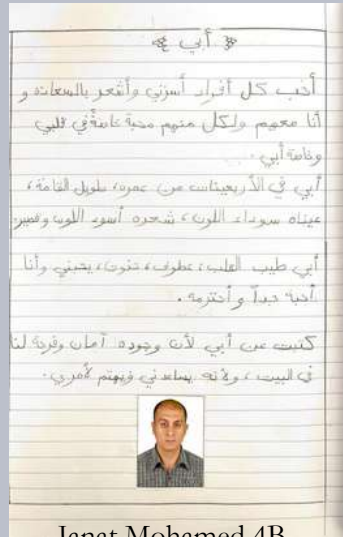 أبي
أحب كل أفراد أسرتي وأشعر بالسعادة و
أنا معهم ولكل منهم محبة خاصةً في قلبي
وخاصة أبي.
أبي في الأربعينات من عمره، طويل القامة،
عيناه سوداء اللون، شعره أسود اللون وقصير.
أبي طيب القلب، عطوف، حنون، يحبني وأنا
أحبة جداً وأحترمه.
كتبت عن أبي لأن وجوده آمان وفرحة لنا
في البيت، ولأنه يساعدني ويهتم لأمري.
Janat Mohamed 4B